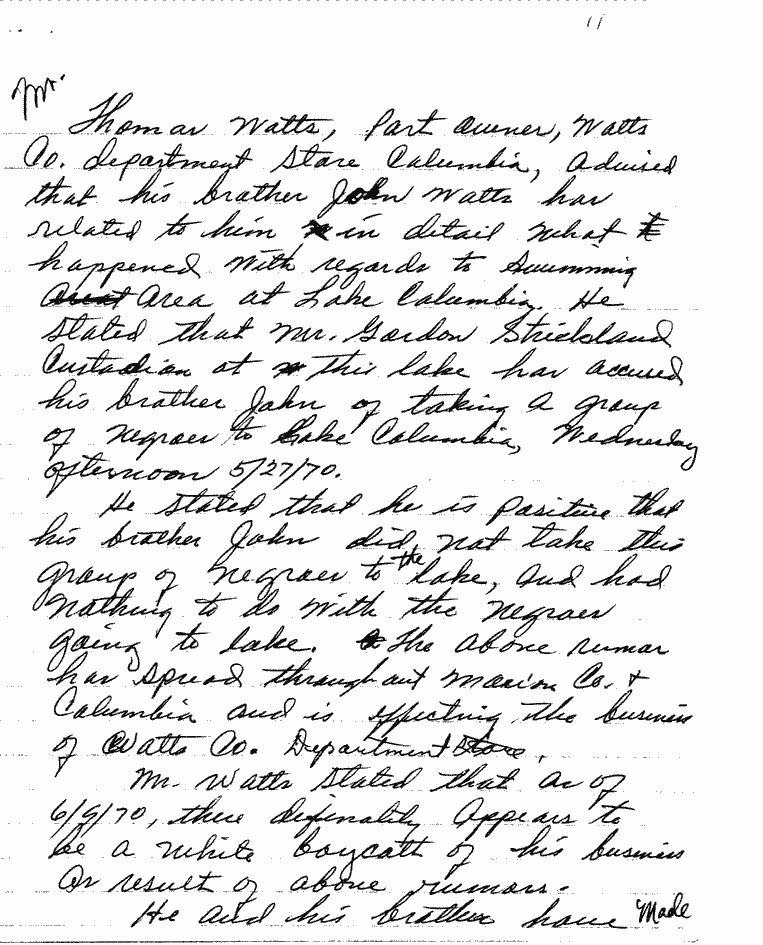 11
Mr.
Thomas Watts, Part Owner, Watts
Co. department Store Columbia, advised
that his brother John Watts has
related to him in detail what
happened with regards to Swimming
Area at Lake Columbia. He
stated that Mr. Gordon Strickland
Custodian at this lake has accused
his brother John of taking a group
of negroes to Lake Columbia, Wednesday
afternoon 5/27/70.
He stated that he is positive that
his brother John did not take this
group of negroes to the lake, and had
nothing to do with the negroes
going to lake. The above rumor
has spread throughout Marion Co. &
Columbia and is effecting the business
of Watts Co. Department Store.
Mr. Watts stated that as of
6/9/70, there definately appears to
be a white boycott of his business
as result of above rumors.
He and his brother have Made